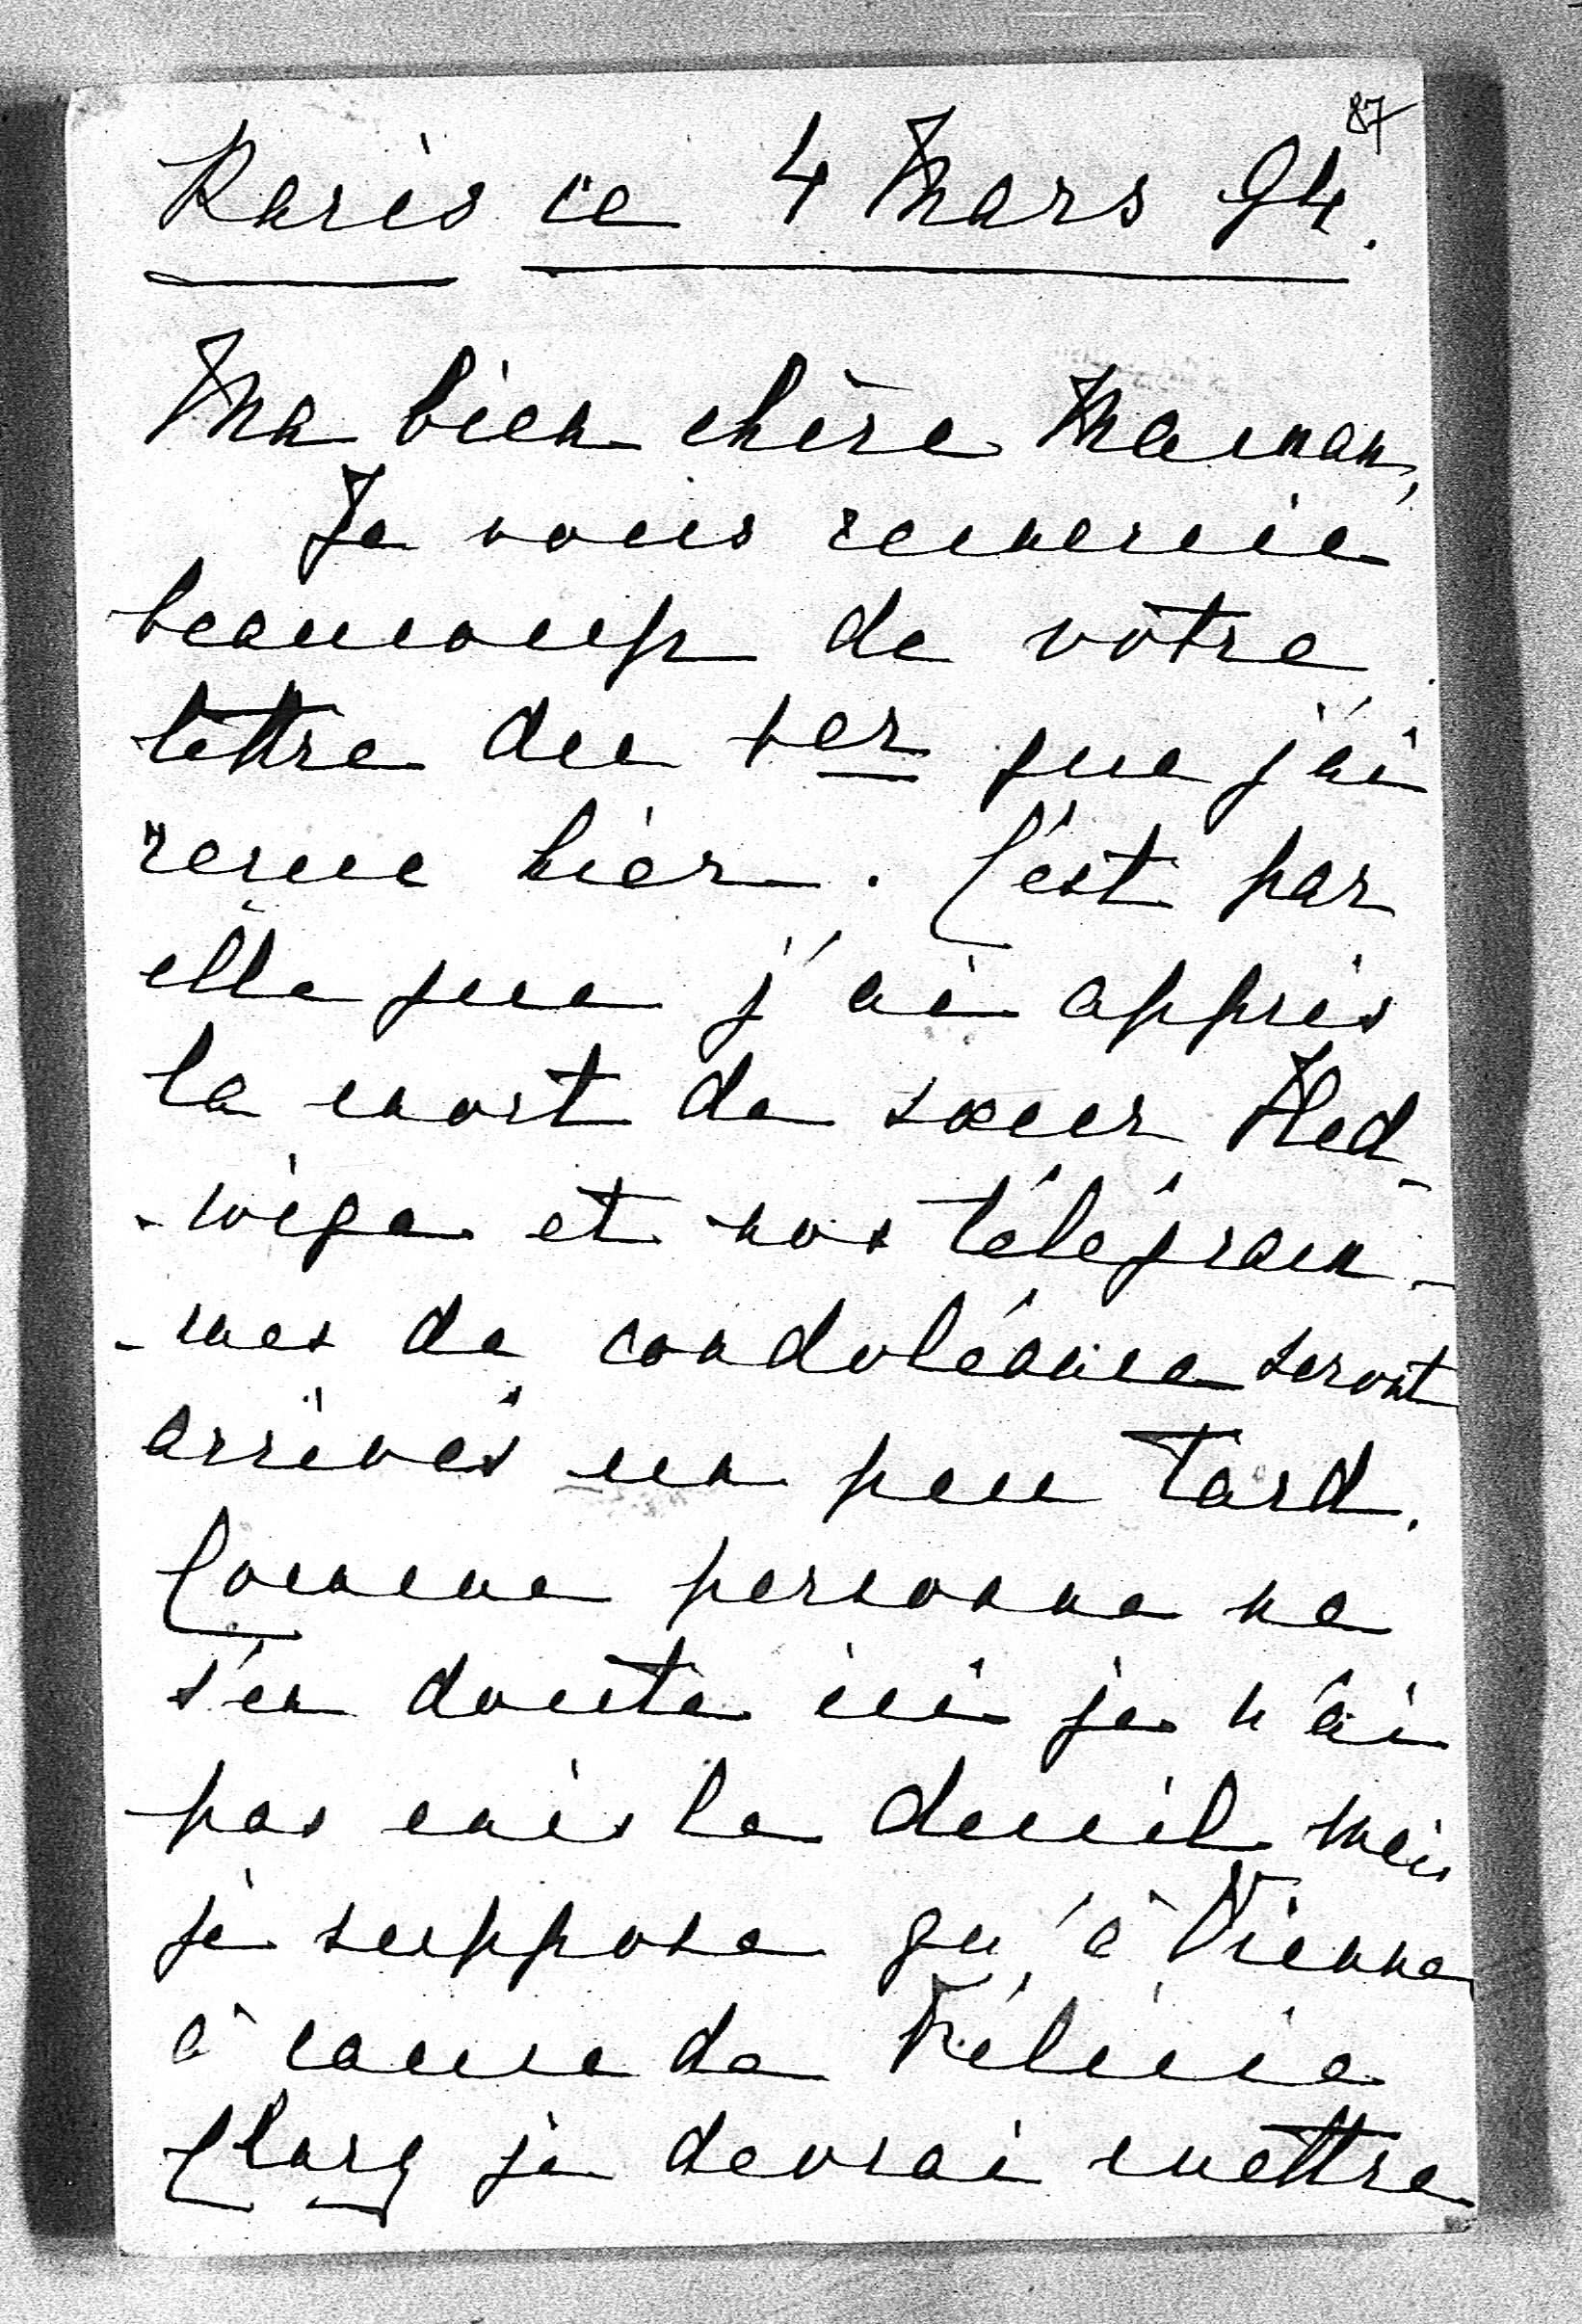 87
Paris ce 4 Mars 94.
Ma bien chère Maman,
Je vous remercie
beaucoup de vôtre
lettre du 1er que j'ai
reçue hier. C'est par
elle que j'ai appris
la mort de sœur Hed-
-wige et nos télégram-
-mes de condoléance seront
arrivés un peu tard.
Comme personne ne
s'en doute ici je n'ai
pas mis le deuil mais
je suppose qu'à Vienne
à cause de Félicie
Clary je devrai mettre